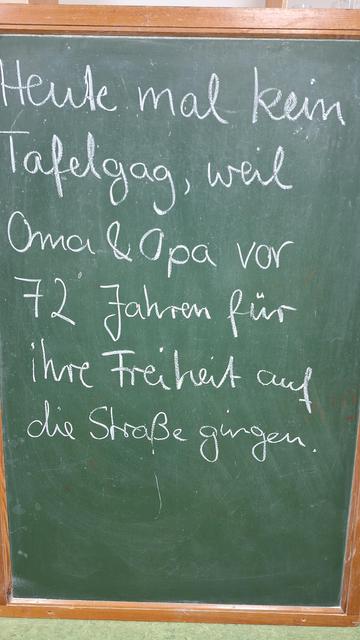 Heute mal kein
Tafelgag, weil
Oma & Opa vor
72 Jahren für
ihre Freiheit auf
die Straße gingen.